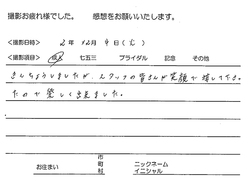 撮影お疲れ様でした。 感想をお願いいたします。
<撮影日時> 2年 12月 9日(火)
<撮影項目> 成人 七五三 ブライダル 記念 その他
きんちょうしましたが、スタッフの皆さんが笑顔で接して下さっ
たので楽しく出来ました。
お住まい 市 町 村 ニックネーム イニシャル